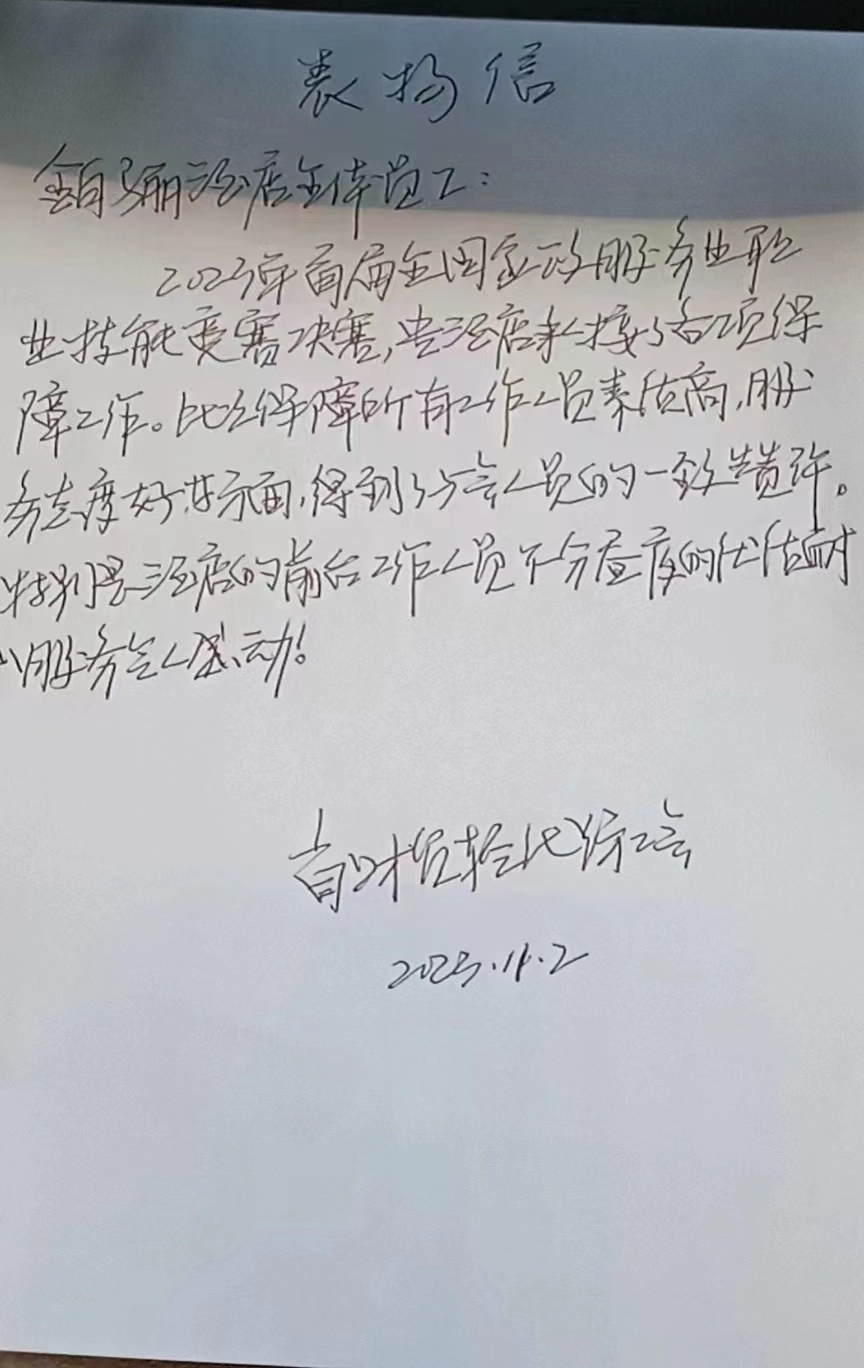 表扬信
铂骊酒店全体员工：
2023年首届全国家政服务业职
业技能竞赛决赛，贵酒店承接了各项保
障工作。比赛保障所有工作人员素质高，服
务态度好等方面，得到了与会人员的一致赞许。
特别是酒店的前台工作人员不分昼夜的优质
服务令人感动！
省财贸轻化纺工会
2023.11.2